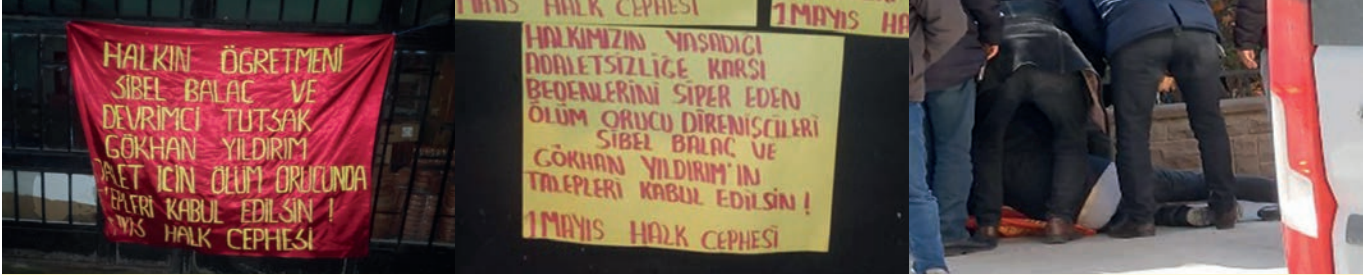 HALKIN ÖĞRETMENİ
SİBEL BALAÇ VE
DEVRİMCİ TUTSAK
GÖKHAN YILDIRIM
İÇİN ÖLÜM ORUCUNDA
KABUL EDİLSİN !
HALK CEPHESİ
MAYIS HALK CEPHESİ
1 MAYIS HA
HALKIMIZIN YAŞADIĞI
ADALETSİZLİĞE KARŞI
BEDENLERİNİ SİPER EDEN
ÖLÜM ORUCU DİRENİŞCİLERİ
SİBEL BALAÇ VE
GÖKHAN YILDIRIM'IN
TALEPLERİ KABUL EDİLSİN !
1 MAYIS HALK CEPHESİ